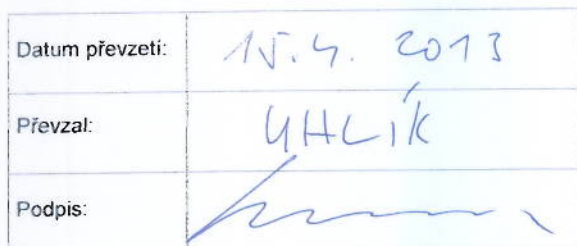 Datum převzetí: 15.4. 2013
Převzal: UHLÍK
Podpis: